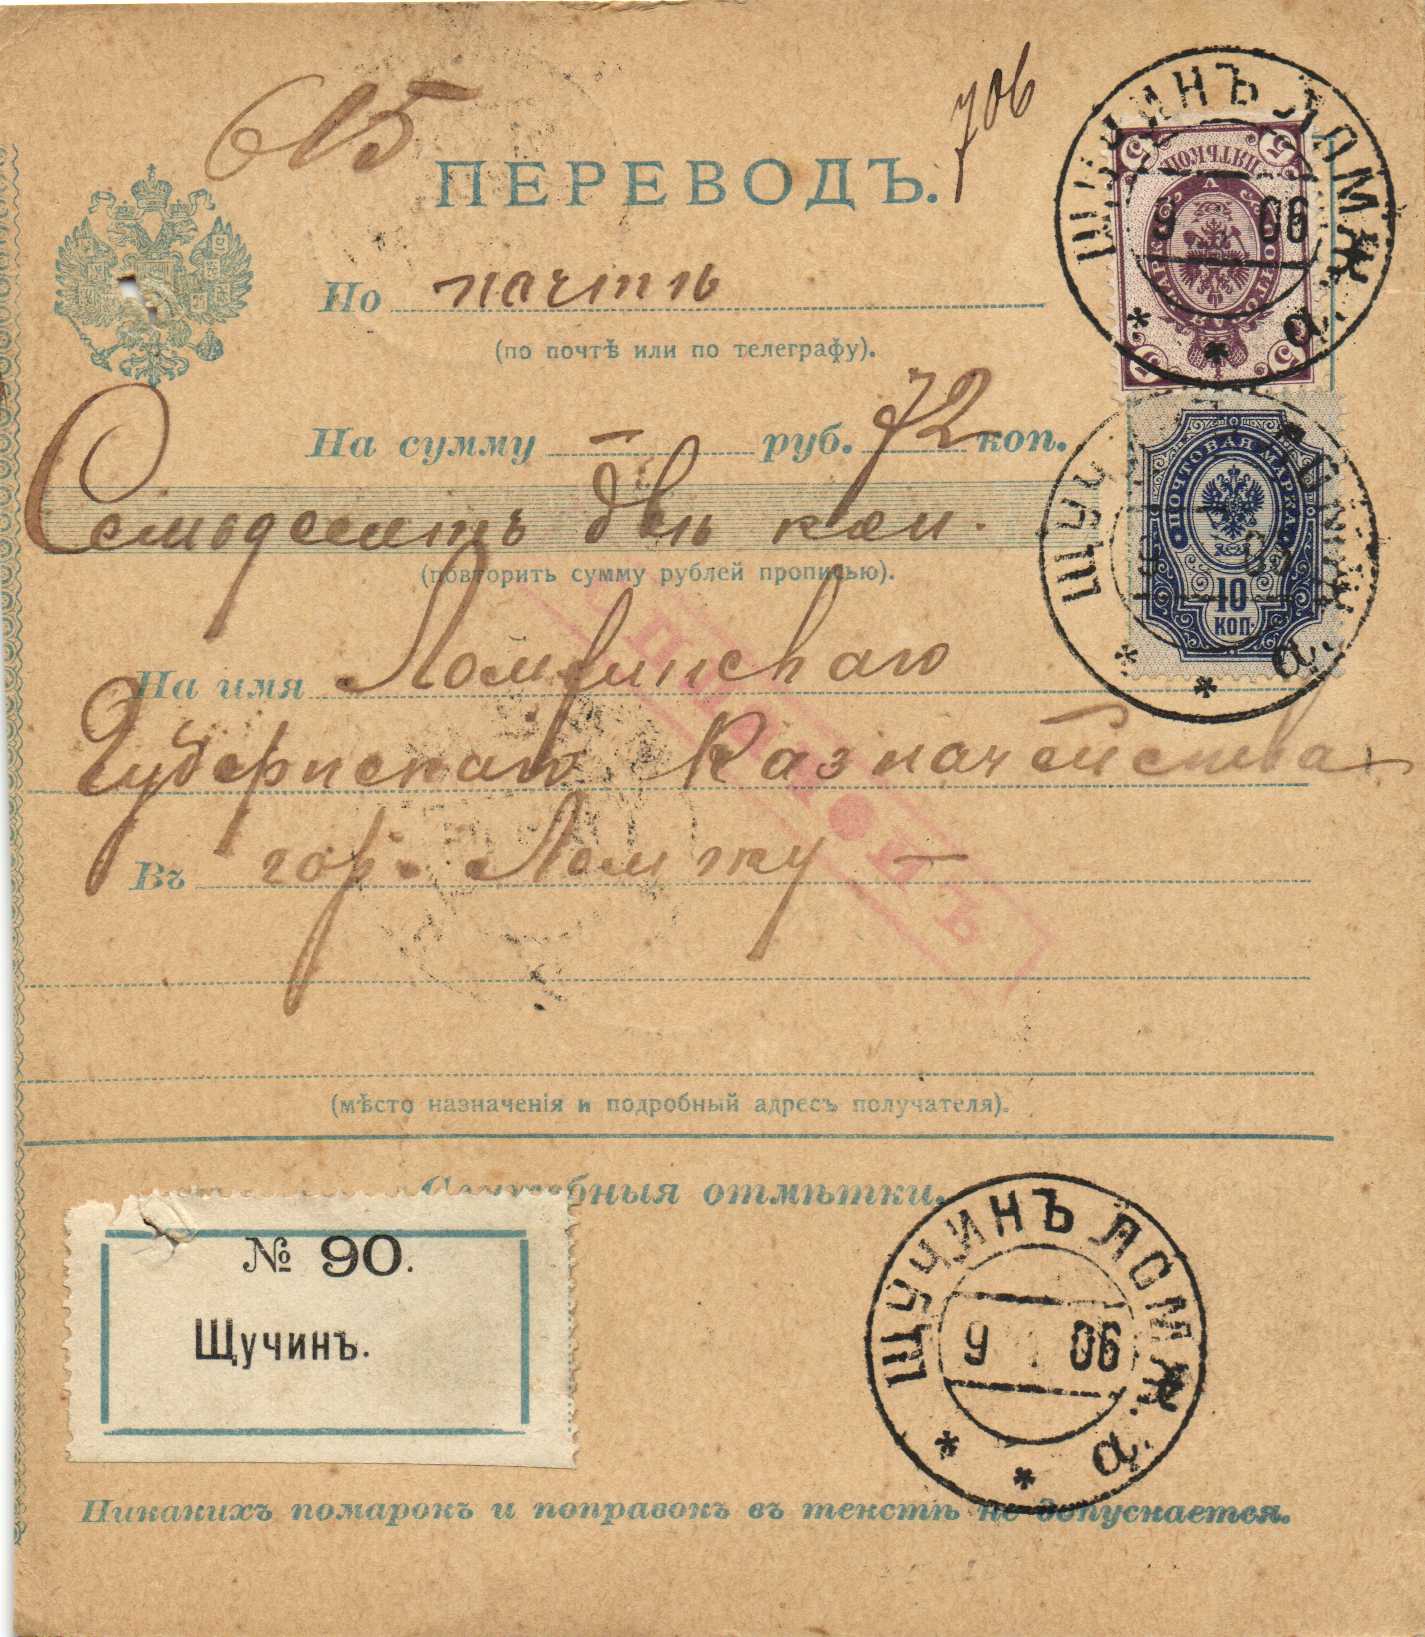 615
706
ПЕРЕВОДЪ.
По почтѣ
(по почтѣ или по телеграфу).
На сумму — руб. 72 коп.
Семьдесятъ двѣ коп.
(повторить сумму рублей прописью).
На имя Ломжинскаго
Губернскаго Казначейства
Въ гор. Ломжу —
(мѣсто назначенія и подробный адресъ получателя).
Служебныя отмѣтки.
№ 90.
Щучинъ.
Никакихъ помарокъ и поправокъ въ текстѣ не допускается.
ЩУЧИНЪ ЛОМЖ.
9 06
а.
ПЯТЬ КОП.
5 5 5 5
ПОЧТОВАЯ МАРКА
ЩУЧИНЪ ЛОМЖ.
а.
ПОЧТОВАЯ МАРКА
10
КОП.
ЩУЧИНЪ ЛОМЖ.
9 06
а.